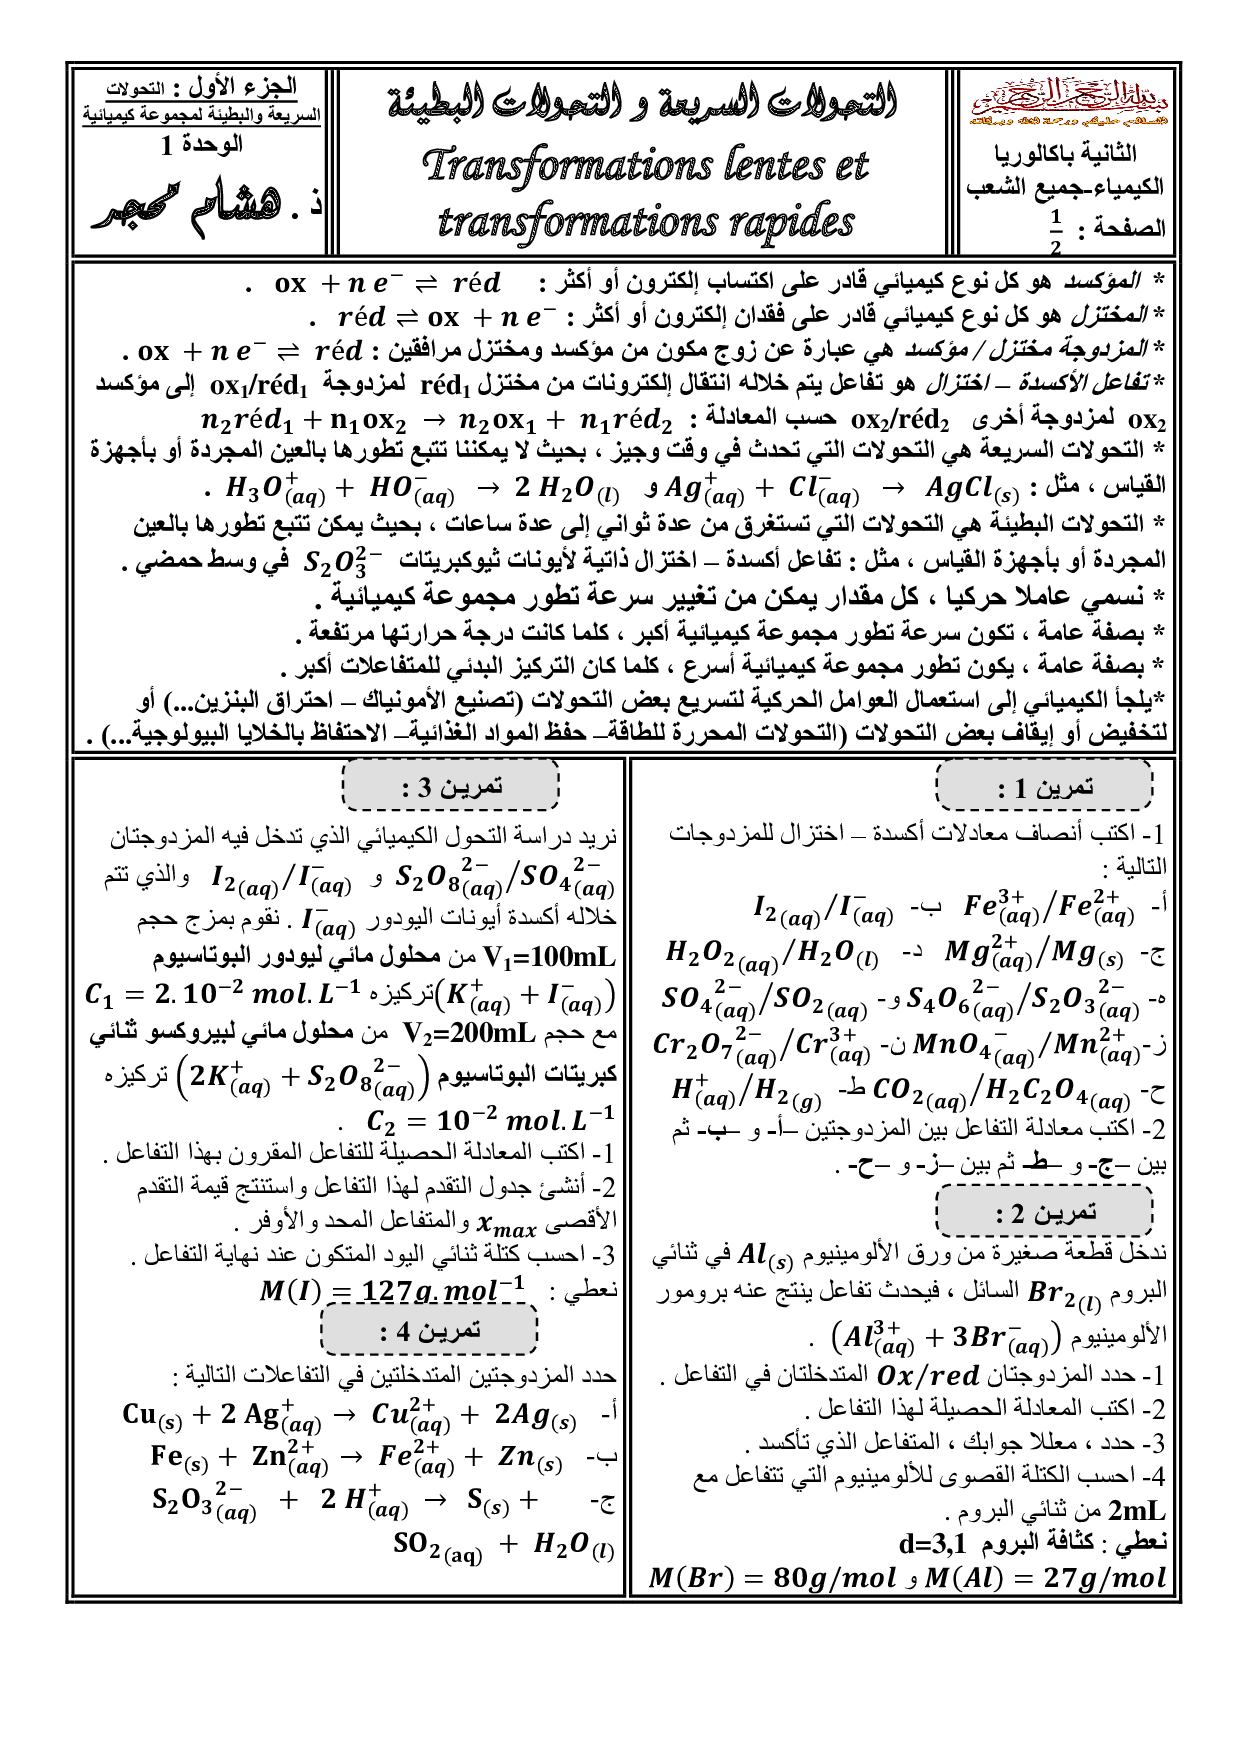 الثانية باكالوريا
الكيمياء-جميع الشعب
الصفحة : 1/2
التحولات السريعة و التحولات البطيئة
Transformations lentes et
transformations rapides
الجزء الأول : التحولات
السريعة والبطيئة لمجموعة كيميائية
الوحدة 1
ذ . هشام محجر
* المؤكسد هو كل نوع كيميائي قادر على اكتساب إلكترون أو أكثر : ox + n e⁻ ⇌ réd .
* المختزل هو كل نوع كيميائي قادر على فقدان إلكترون أو أكثر : réd ⇌ ox + n e⁻ .
* المزدوجة مختزل / مؤكسد هي عبارة عن زوج مكون من مؤكسد ومختزل مرافقين : ox + n e⁻ ⇌ réd .
* تفاعل الأكسدة – اختزال هو تفاعل يتم خلاله انتقال إلكترونات من مختزل réd₁ لمزدوجة ox₁/réd₁ إلى مؤكسد
ox₂ لمزدوجة أخرى ox₂/réd₂ حسب المعادلة : n₂réd₁ + n₁ox₂ → n₂ox₁ + n₁réd₂
* التحولات السريعة هي التحولات التي تحدث في وقت وجيز ، بحيث لا يمكننا تتبع تطورها بالعين المجردة أو بأجهزة
القياس ، مثل : Ag⁺(aq) + Cl⁻(aq) → AgCl(s) و H₃O⁺(aq) + HO⁻(aq) → 2 H₂O(l) .
* التحولات البطيئة هي التحولات التي تستغرق من عدة ثواني إلى عدة ساعات ، بحيث يمكن تتبع تطورها بالعين
المجردة أو بأجهزة القياس ، مثل : تفاعل أكسدة – اختزال ذاتية لأيونات ثيوكبريتات S₂O₃²⁻ في وسط حمضي .
* نسمي عاملا حركيا ، كل مقدار يمكن من تغيير سرعة تطور مجموعة كيميائية .
* بصفة عامة ، تكون سرعة تطور مجموعة كيميائية أكبر ، كلما كانت درجة حرارتها مرتفعة .
* بصفة عامة ، يكون تطور مجموعة كيميائية أسرع ، كلما كان التركيز البدئي للمتفاعلات أكبر .
*يلجأ الكيميائي إلى استعمال العوامل الحركية لتسريع بعض التحولات (تصنيع الأمونياك – احتراق البنزين...) أو
لتخفيض أو إيقاف بعض التحولات (التحولات المحررة للطاقة– حفظ المواد الغذائية– الاحتفاظ بالخلايا البيولوجية...) .
تمرين 1 :
1- اكتب أنصاف معادلات أكسدة – اختزال للمزدوجات
التالية :
أ- Fe³⁺(aq)/Fe²⁺(aq) ب- I₂(aq)/I⁻(aq)
ج- Mg²⁺(aq)/Mg(s) د- H₂O₂(aq)/H₂O(l)
ه- S₄O₆²⁻(aq)/S₂O₃²⁻(aq) و- SO₄²⁻(aq)/SO₂(aq)
ز- MnO₄⁻(aq)/Mn²⁺(aq) ن- Cr₂O₇²⁻(aq)/Cr³⁺(aq)
ح- CO₂(aq)/H₂C₂O₄(aq) ط- H⁺(aq)/H₂(g)
2- اكتب معادلة التفاعل بين المزدوجتين –أ- و –ب- ثم
بين –ج- و –ط- ثم بين –ز- و –ح- .
تمرين 2 :
ندخل قطعة صغيرة من ورق الألومينيوم Al(s) في ثنائي
البروم Br₂(l) السائل ، فيحدث تفاعل ينتج عنه برومور
الألومينيوم (Al³⁺(aq) + 3Br⁻(aq)) .
1- حدد المزدوجتان Ox/red المتدخلتان في التفاعل .
2- اكتب المعادلة الحصيلة لهذا التفاعل .
3- حدد ، معللا جوابك ، المتفاعل الذي تأكسد .
4- احسب الكتلة القصوى للألومينيوم التي تتفاعل مع
2mL من ثنائي البروم .
نعطي : كثافة البروم d=3,1
M(Al) = 27g/mol و M(Br) = 80g/mol
تمرين 3 :
نريد دراسة التحول الكيميائي الذي تدخل فيه المزدوجتان
S₂O₈²⁻(aq)/SO₄²⁻(aq) و I₂(aq)/I⁻(aq) والذي تتم
خلاله أكسدة أيونات اليودور I⁻(aq) . نقوم بمزج حجم
V₁=100mL من محلول مائي ليودور البوتاسيوم
(K⁺(aq) + I⁻(aq)) تركيزه C₁ = 2. 10⁻² mol. L⁻¹
مع حجم V₂=200mL من محلول مائي لبيروكسو ثنائي
كبريتات البوتاسيوم (2K⁺(aq) + S₂O₈²⁻(aq)) تركيزه
C₂ = 10⁻² mol. L⁻¹ .
1- اكتب المعادلة الحصيلة للتفاعل المقرون بهذا التفاعل .
2- أنشئ جدول التقدم لهذا التفاعل واستنتج قيمة التقدم
الأقصى xₘₐₓ والمتفاعل المحد والأوفر .
3- احسب كتلة ثنائي اليود المتكون عند نهاية التفاعل .
نعطي : M(I) = 127g. mol⁻¹
تمرين 4 :
حدد المزدوجتين المتدخلتين في التفاعلات التالية :
أ- Cu(s) + 2 Ag⁺(aq) → Cu²⁺(aq) + 2Ag(s)
ب- Fe(s) + Zn²⁺(aq) → Fe²⁺(aq) + Zn(s)
ج- S₂O₃²⁻(aq) + 2 H⁺(aq) → S(s) +
SO₂(aq) + H₂O(l)